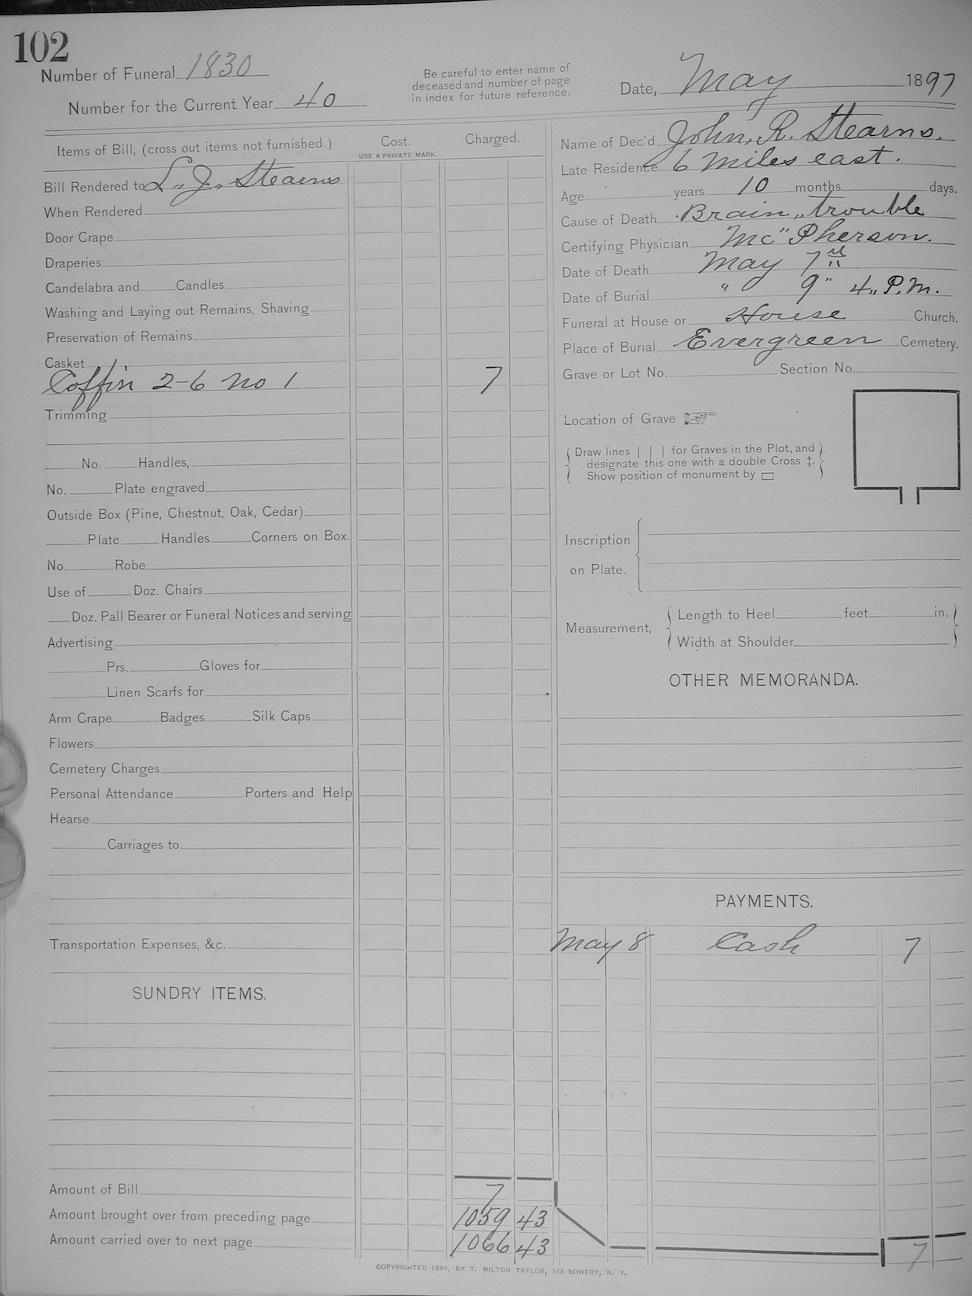 102
Number of Funeral 1830
Number for the Current Year 40
Be careful to enter name of
deceased and number of page
in index for future reference.
Date, May 1897
Items of Bill, (cross out items not furnished.)
Cost.
USE A PRIVATE MARK.
Charged.
Bill Rendered to L. J. Stearns
When Rendered
Door Crape
Draperies
Candelabra and Candles
Washing and Laying out Remains, Shaving
Preservation of Remains
Casket
Coffin 2-6 No 1 7
Trimming
No. Handles,
No. Plate engraved
Outside Box (Pine, Chestnut, Oak, Cedar)
Plate Handles Corners on Box.
No. Robe
Use of Doz. Chairs
Doz. Pall Bearer or Funeral Notices and serving
Advertising
Prs. Gloves for
Linen Scarfs for
Arm Crape Badges Silk Caps
Flowers
Cemetery Charges
Personal Attendance Porters and Help
Hearse
Carriages to
Transportation Expenses, &c.
SUNDRY ITEMS.
Amount of Bill 7
Amount brought over from preceding page 1059 43
Amount carried over to next page 1066 43
Name of Dec'd John, R. Stearns.
Late Residence 6 miles east.
Age years 10 months days.
Cause of Death Brain,, trouble
Certifying Physician Mc" Pherson.
Date of Death May 7
Date of Burial " 9" 4,, P.M.
Funeral at House or House Church.
Place of Burial Evergreen Cemetery.
Grave or Lot No. Section No.
Location of Grave ☞
Draw lines | | | for Graves in the Plot, and
designate this one with a double Cross ‡.
Show position of monument by ▭
Inscription
on Plate.
Measurement,
Length to Heel feet in.
Width at Shoulder
OTHER MEMORANDA.
PAYMENTS.
May 8 Cash 7
7
COPYRIGHTED 1890, BY T. MILTON TAYLOR, 163 BOWERY, N. Y.